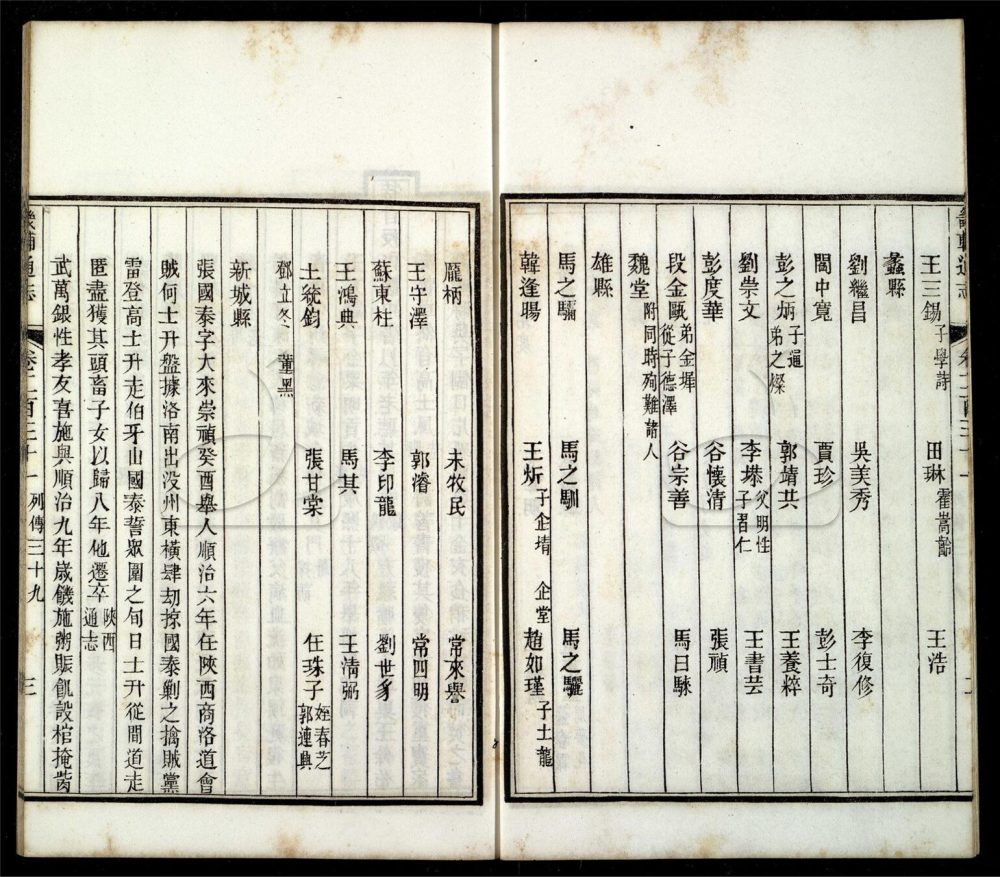 畿輔通志 卷二百三十一
王三錫 子學詩 田琳 霍嵩齡 王浩
蠡縣
劉繼昌 吳美秀 李復修
閻中寬 賈珍 彭士奇
彭之炳 子通 弟之燦 郭靖共 王養粹
劉崇文 李恭 父明性 子習仁 王書芸
彭度華 谷懷清 張禎
段金甌 弟金墀 從子德澤 谷宗善 馬日騋
魏堂 附同時殉難諸人
雄縣
馬之驦 馬之馴 馬之驪
韓逢暘 王炘 子企埥 企堂 趙如瑾 子士龍
龐柄 未牧民 常來譽
王守澤 郭濬 常四明
蘇東柱 李印龍 劉世豸
王鴻典 馬其 王淸弼
土統鈞 張甘棠 任珠子 姪春芝 郭連典
鄧立冬 董黑
新城縣
張國泰字大來崇禎癸酉舉人順治六年任陝西商洛道會
賊何士升盤據洛南出没州東橫肆刧掠國泰剿之擒賊黨
雷登高士升走伯牙山國泰誓眾圍之旬日士升從間道走
匿盡獲其頭畜子女以歸八年他遷卒 陝西通志
武萬銀性孝友喜施與順治九年歲饑施粥賑飢設棺掩胔
畿輔通志 卷二百三十一 列傳三十九 三